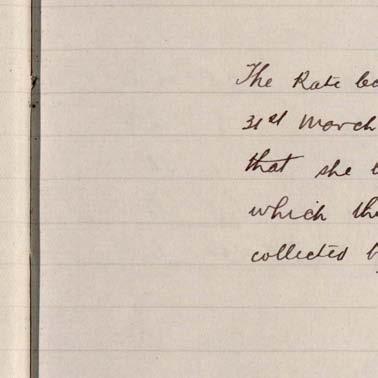 The Rate
31st March
that she
which
collected